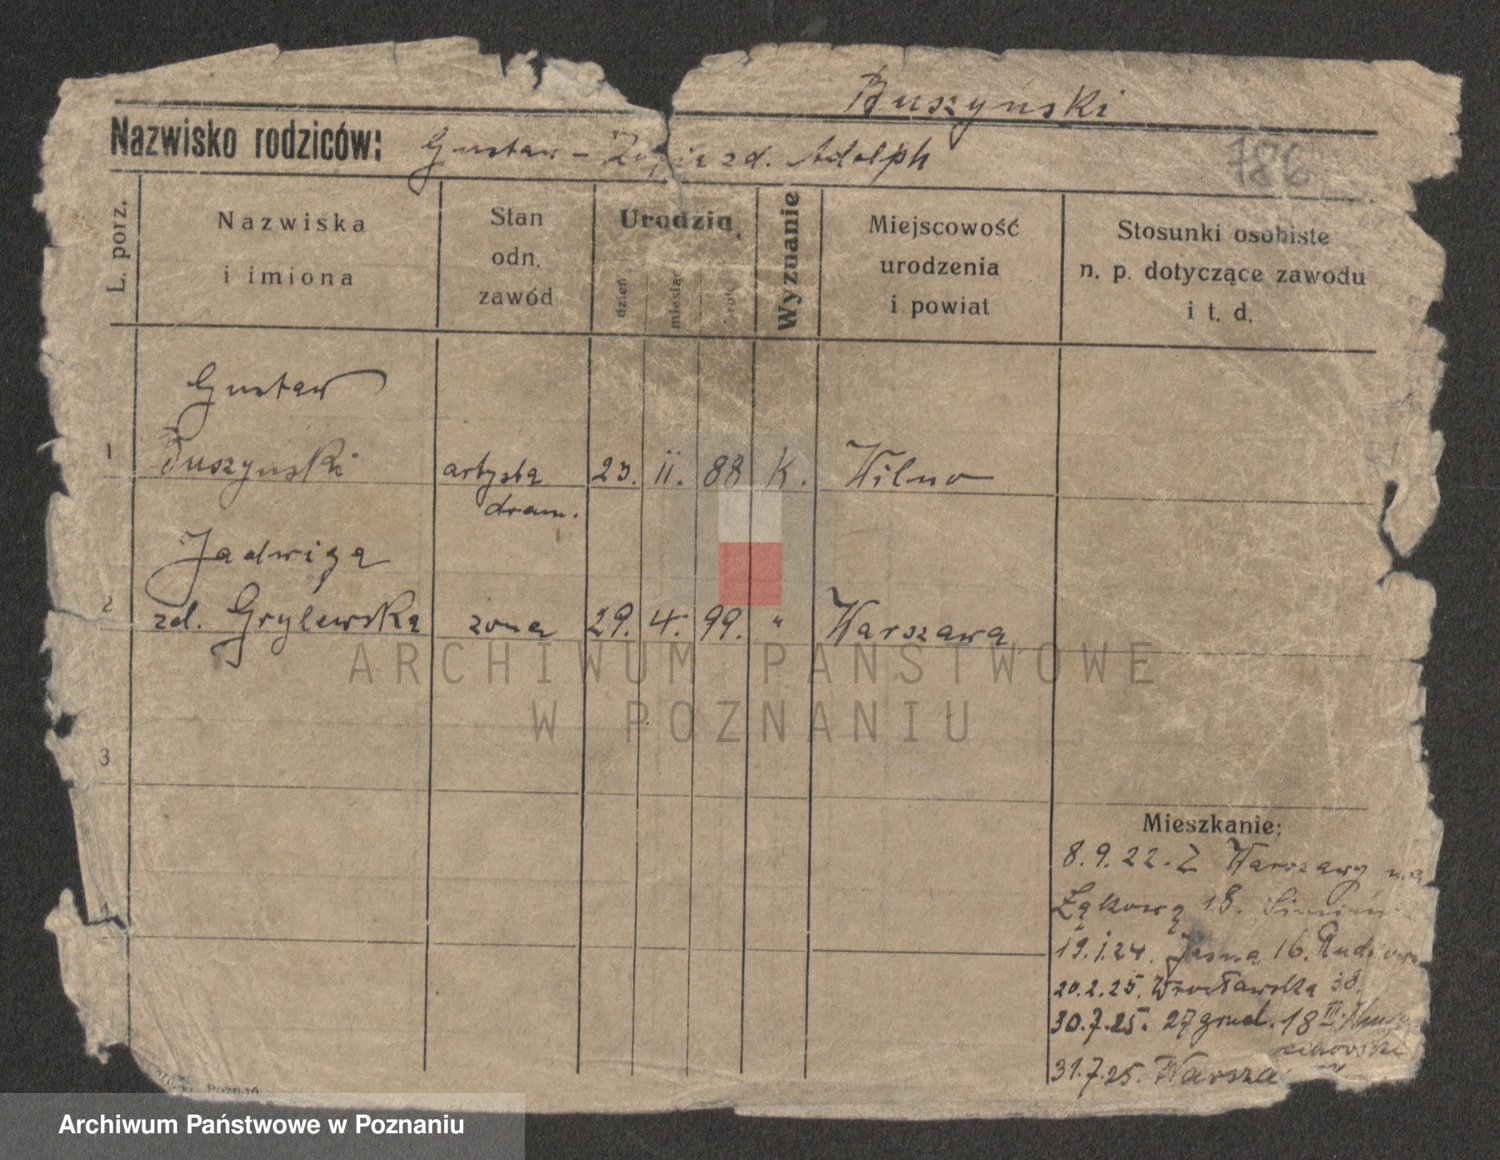 Buszyński
Nazwisko rodziców: Gustaw - Zofia zd. Adolph
786
L. porz.
Nazwiska
i imiona
Stan
odn.
zawód
Urodzin
dzień
miesiąc
rok
Wyznanie
Miejscowość
urodzenia
i powiat
Stosunki osobiste
n. p. dotyczące zawodu
i t. d.
Gustaw
1 Buszyński artysta 23. II. 88 K. Wilno
dram.
Jadwiga
2 zd. Grylewska żona 29. 4. 99. " Warszawa
ARCHIWUM PAŃSTWOWE
W POZNANIU
3
Mieszkanie:
8.9.22. Z Warszawy na
Łąkową 18.
19.1.24. Jasna 16.
20.2.25. Wrocławska 38.
30.7.25. 27 grud. 18 III.
31.7.25. Warsza
Poznań
Archiwum Państwowe w Poznaniu